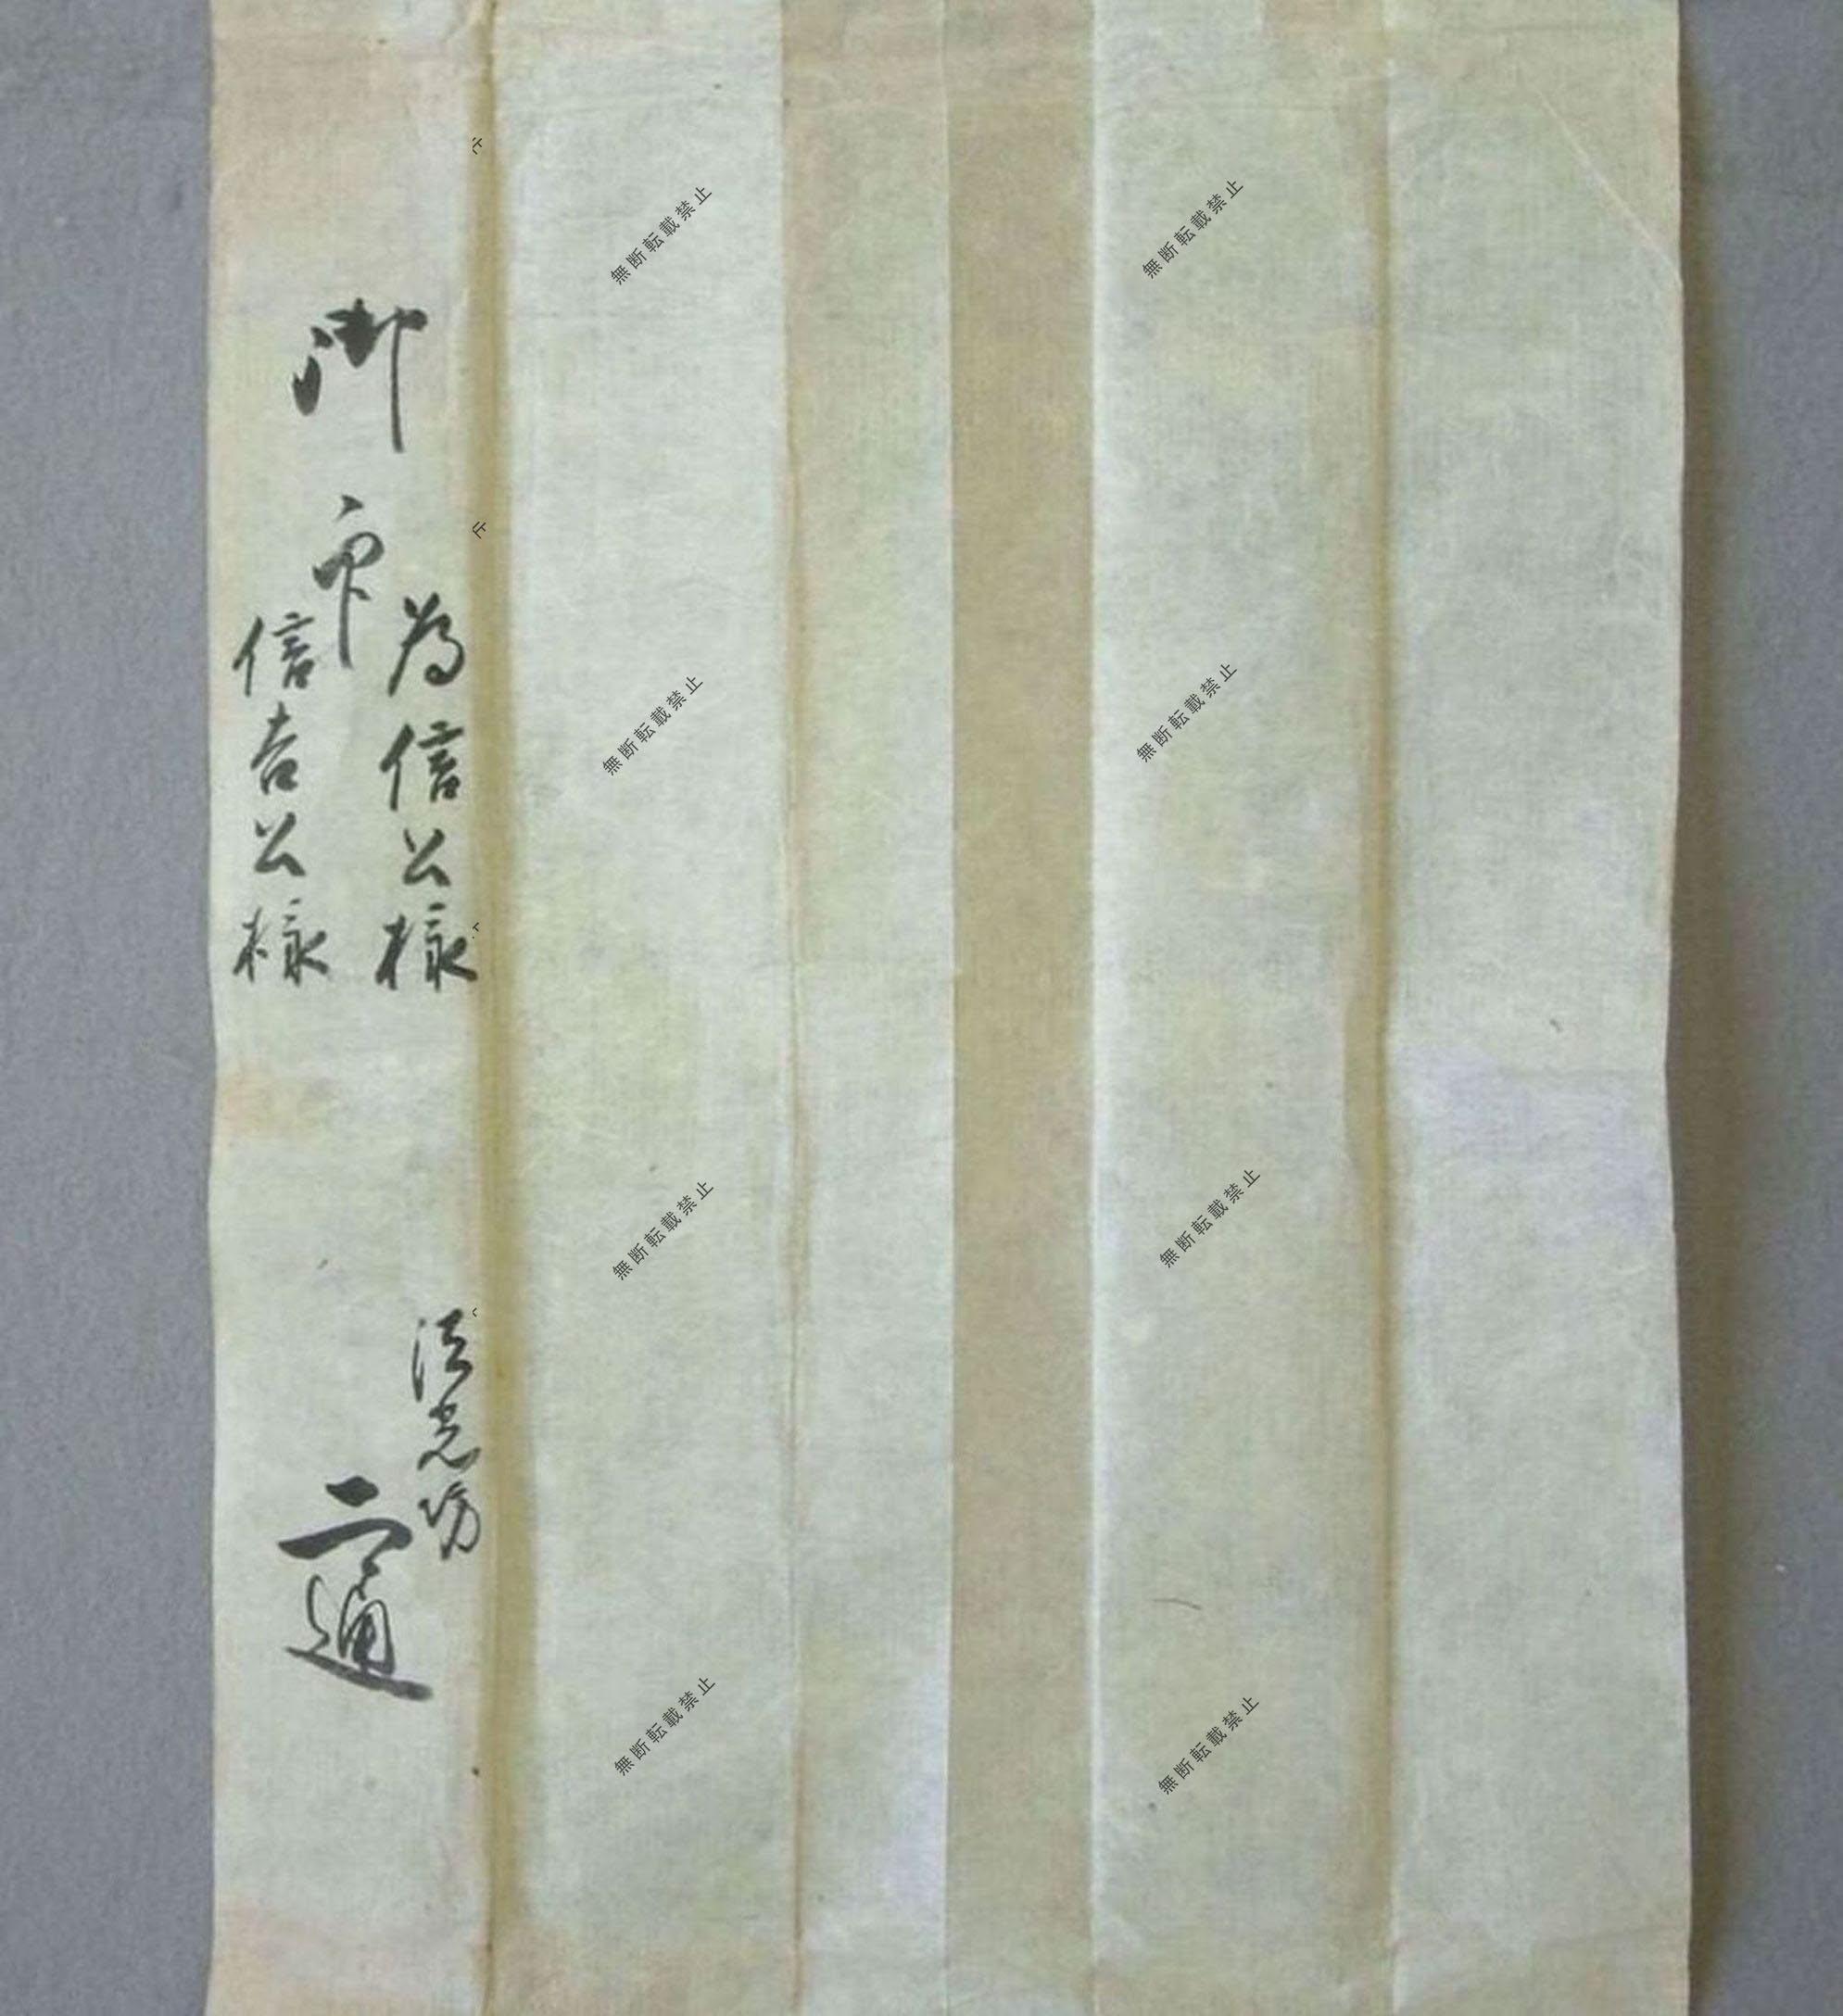 御印
為信公様
信吉公様
法光坊
二通
無断転載禁止
無断転載禁止
無断転載禁止
無断転載禁止
無断転載禁止
無断転載禁止
無断転載禁止
無断転載禁止